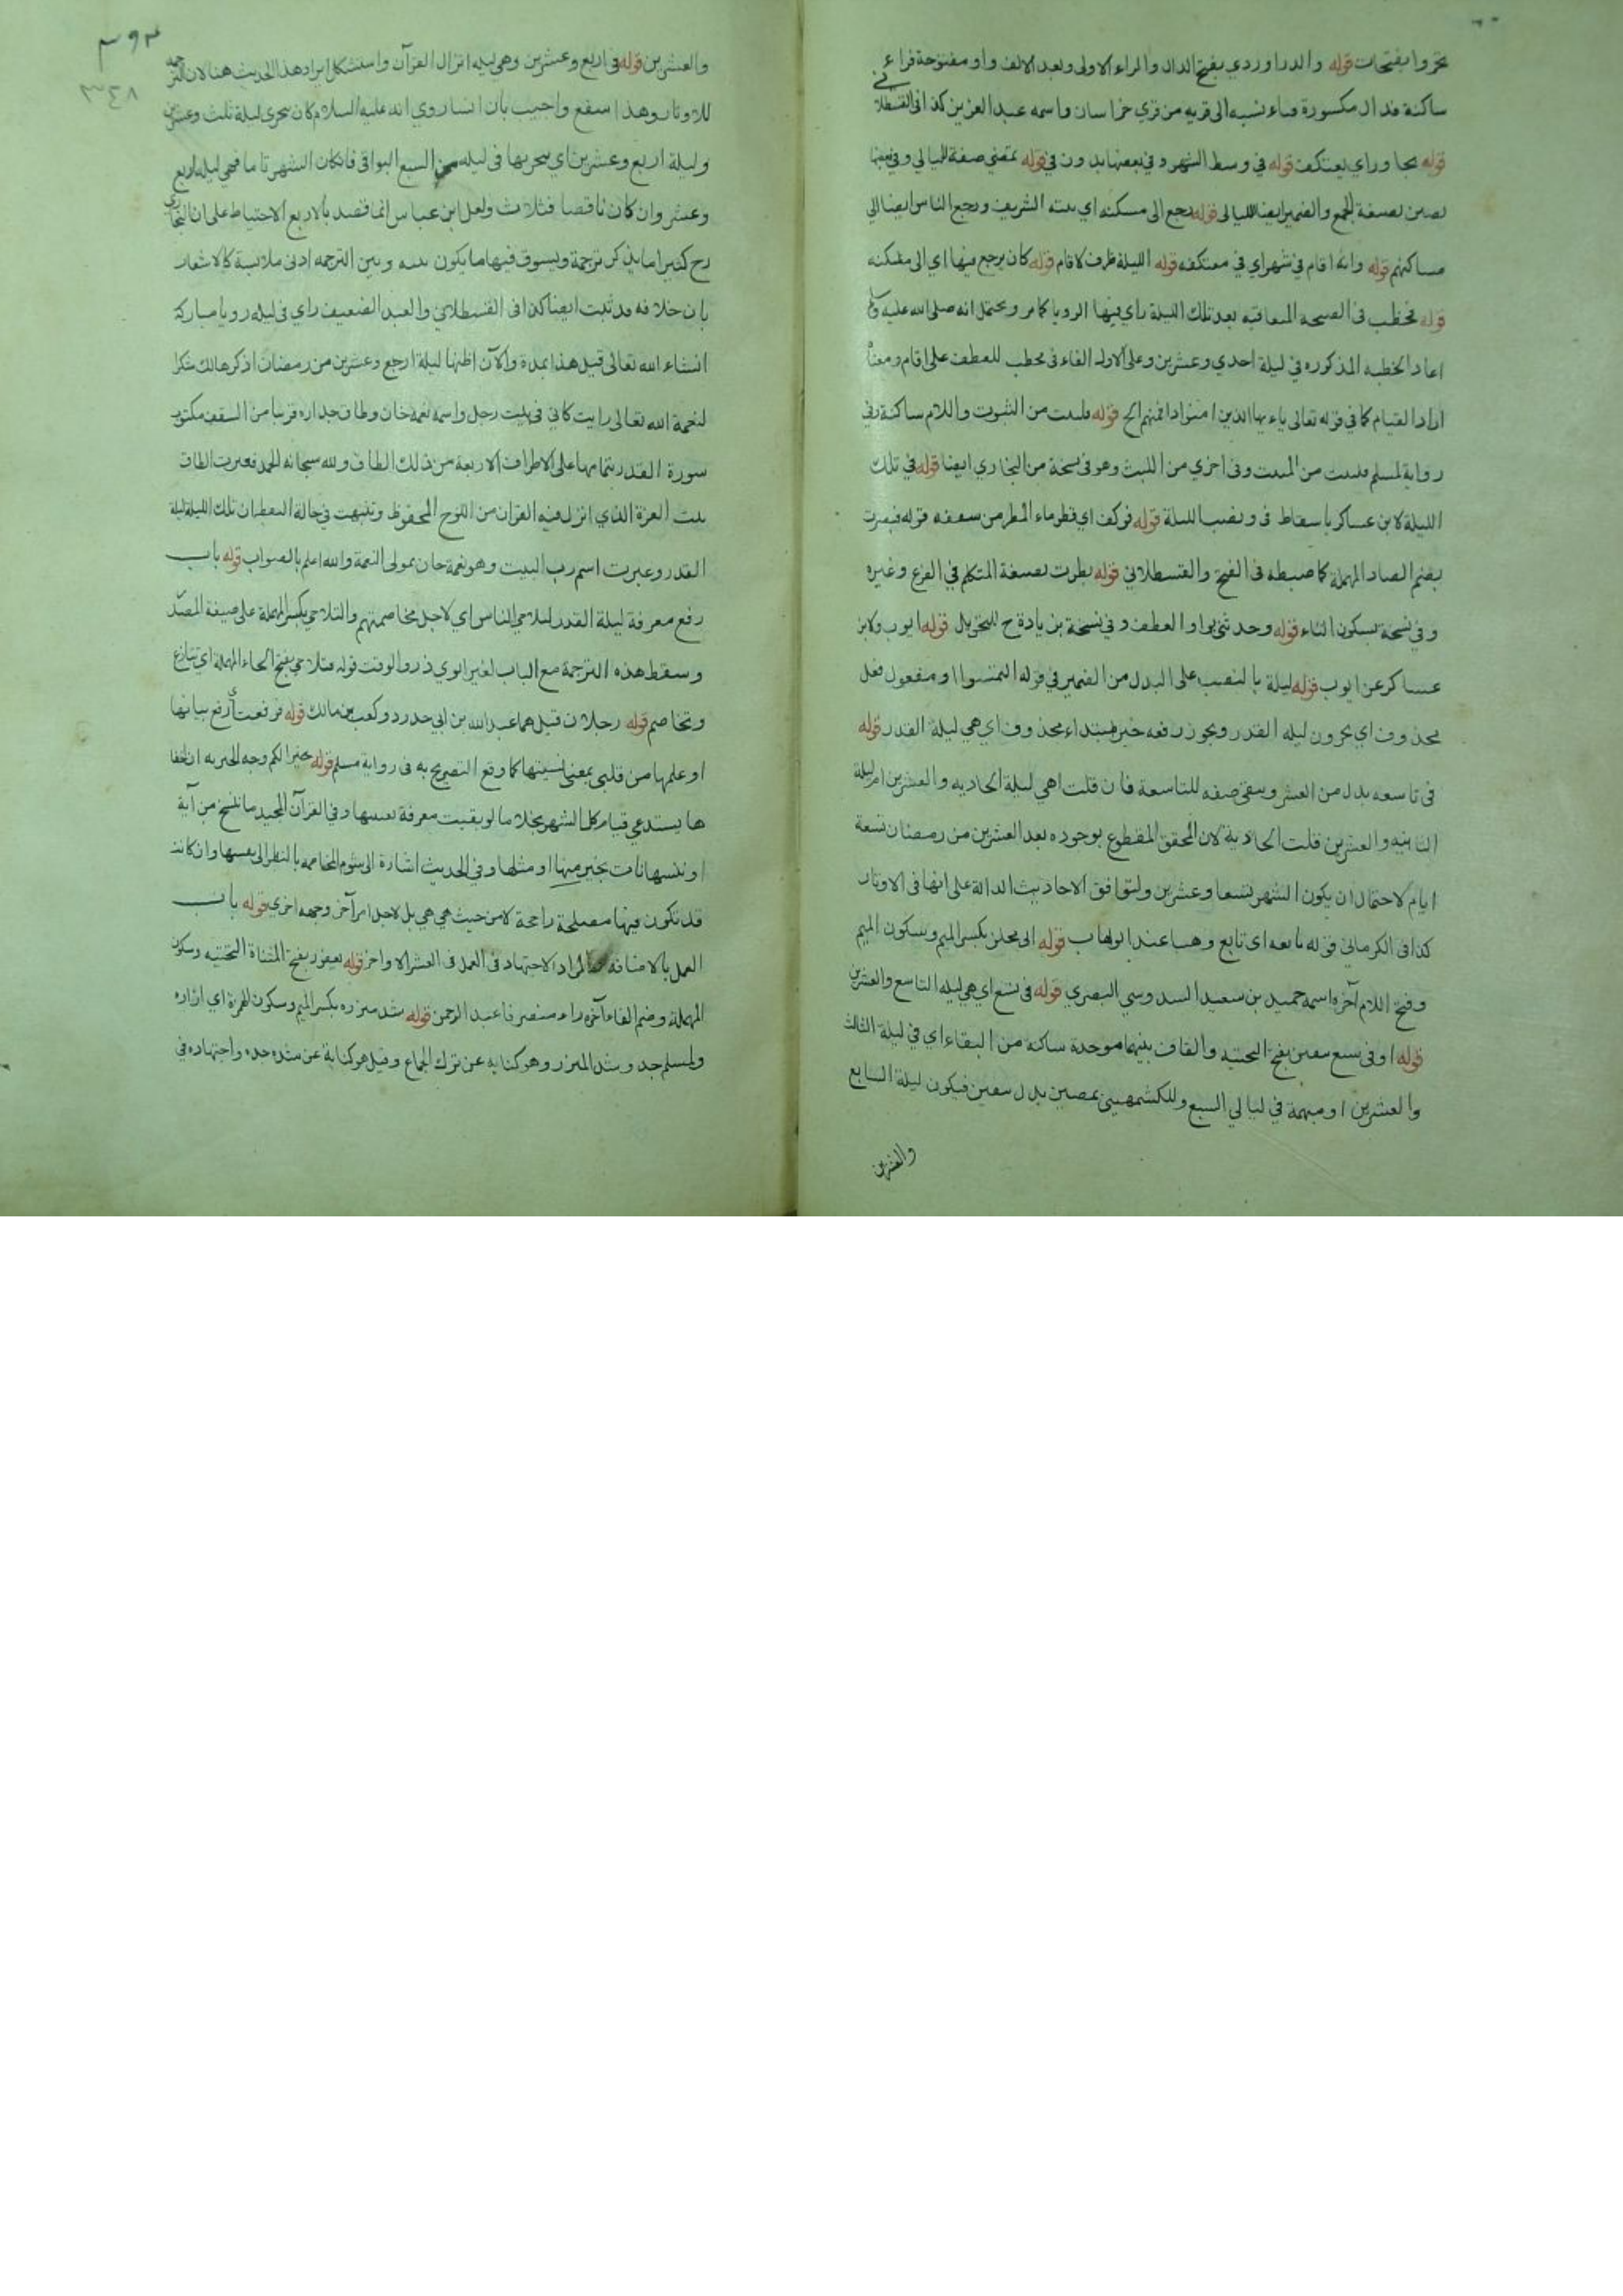 تحروا بفتحات قوله والدراوردي بفتح الدال والراء الاولى وبعد الالف واو مفتوحة فراء
ساكنة فدال مكسورة فياء نسبه الى قريه من قري خراسان واسمه عبد العزيز كذا في القسطلاني
قوله يجاور اي يعتكف قوله في وسط الشهر وفي بعضها بدون في قوله تمضي صفة لليالي وفي بعضها
بصيغة الجمع والضمير ايضا لليالي قوله رجع الى مسكنه اي بيته الشريف ورجع الناس ايضا الى
مساكنهم قوله وانه اقام في شهر اي في معتكفه قوله الليلة ظرف لاقام قوله كان يرجع فيها اي الى معتكفه
قوله فخطب في الصبحه المتعاقبه بعد تلك الليلة راي فيها الرويا كما مر ويحتمل انه صلى الله عليه
اعاد الخطبه المذكوره في ليلة احدي وعشرين وعلى الاول الفاء في فخطب للعطف على اقام ومعناه
اراد القيام كما في قوله تعالى ياءيها الذين امنوا اذا قمتم الخ قوله فليثبت من الثبوت واللام ساكنة وفي
رواية لمسلم فليبت من المبيت وفي اخري من اللبث وهو في نسخة من البخاري ايضا قوله في تلك
الليلة لابن عساكر باسقاط في ونصب الليلة قوله فوكف اي قطر ماء المطر من سقفه قوله فبصرت
بضم الصاد المهملة كما ضبطه في الفتح والقسطلاني قوله نظرت بصيغة المتكلم في الفرع وغيره
وفي نسخة بسكون التاء قوله وحدثني بواو العطف وفي نسخة بزيادة ح للتحويل قوله ايوب ولابن
عساكر عن ايوب قوله ليلة بالنصب على البدل من الضمير في قوله التمسوا او مفعول فعل
محذوف اي تحرون ليله القدر ويجوز رفعه خبر مبتداء محذوف اي هي ليلة القدر قوله
في تاسعه بدل من العشر وتبقى صفه للتاسعة فان قلت اهي ليلة الحاديه والعشرين ام ليلة
الثانيه والعشرين قلت الحادية لان المحقق المقطوع بوجوده بعد العشرين من رمضان تسعة
ايام لاحتمال ان يكون الشهر تسعا وعشرين ولتوافق الاحاديث الدالة على انها في الاوتار
كذا في الكرماني قوله تابعه اي تابع وهيبا عبد الوهاب قوله ابى مجلز بكسر الميم وسكون الجيم
وفتح اللام آخره اسمه حميد بن سعيد السدوسي البصري قوله في تسع اي هي ليله التاسع والعشرين
قوله او في سبع يبقين بفتح التحتيه والقاف بينهما موحدة ساكنه من البقاء اي في ليلة الثالث
والعشرين او مبهمة في ليالي السبع وللكشميهني يمضين بدل يبقين فيكون ليلة السابع
والعشرين
٣٩٣
٣٤٨
والعشرين قوله في اربع وعشرين وهي ليله انزال القرآن واستشكل ايراد هذا الحديث هنا لان الترجمه
للاوتار وهذا شفع واجيب بان انسا روي انه عليه السلام كان يتحرى ليلة ثلث وعشرين
وليلة اربع وعشرين اي يتحريها في ليله من السبع البواقي فان كان الشهر تاما فهي ليله اربع
وعشر وان كان ناقصا فثلاث ولعل ابن عباس انما قصد بالاربع الاحتياط على ان البخاري
رح كثيرا ما يذكر ترجمة ويسوق فيها ما يكون بينه وبين الترجمه ادنى ملابسة كالاشعار
بان خلافه قد ثبت ايضا كذا في القسطلاني والعبد الضعيف راي في ليلة رويا مباركة
انشاء الله تعالى قبل هذا بمدة والآن اظنها ليلة اربع وعشرين من رمضان اذكرها لك شكرا
لنعمة الله تعالى رايت كاني في بيت رجل واسمه نعمه خان وطاق جداره قريبا من السقف مكتوب
سورة القدر بتمامها على الاطراف الاربعة من ذلك الطاق ولله سبحانه الحمد فعبرت الطاق
بيت العزة الذي انزل فيه القران من اللوح المحفوظ وتنبهت في حالة اليقظة ان تلك الليلة ليلة
القدر وعبرت اسم رب البيت وهو نعمة خان بمولى النعمة والله اعلم بالصواب قوله باب
رفع معرفة ليلة القدر لتلاحي الناس اي لاجل مخاصمتهم والتلاحي بكسر المهملة على صيغة المصدر
وسقط هذه الترجمة مع الباب لغير ابوي ذر والوقت قوله فتلاحي بفتح الحاء المهملة اي تنازع
وتخاصم قوله رجلان قيل هما عبد الله بن ابي حدرد وكعب بن مالك قوله فرفعت اي رفع بيانها
او علمها من قلبي بمعنى نسيتها كما وقع التصريح به في رواية مسلم قوله خيرا لكم وجه الخيريه ان اخفا
ها يستدعي قيام كل الشهر بخلاف ما لو بقيت معرفة بعينها وفي القرآن المجيد ما ننسخ من آية
او ننسها نات بخير منها او مثلها وفي الحديث اشارة الى شوم المخاصمه بالنظر الى نفسها وان كانت
قد تكون فيها مصلحة راجحة لا من حيث هي هي بل لاجل امر آخر وجهه اخري قوله باب
العمل بالاضافه والمراد الاجتهاد في العمل في العشر الاواخر قوله يعفور بفتح المثناة التحتيه وسكون
المهملة وضم الفاء آخره راء منصرفا عبد الرحمن قوله شد ميزره بكسر الميم وسكون الهمزة اي ازاره
ولمسلم جد وشد الميزر وهو كنايه عن ترك الجماع وقيل هو كناية عن شده جده واجتهاده في